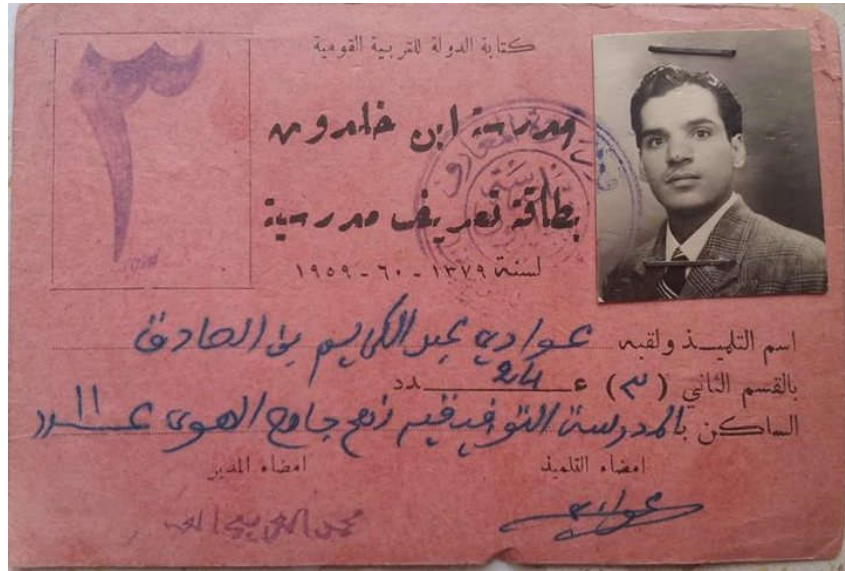 كتابة الدولة للتربية القومية
٣
مدرسة ابن خلدون
بطاقة تعريف مدرسية
لسنة ١٣٧٩ - ٦٠ - ١٩٥٩
اسم التلميذ ولقبه عوادي عبد الكريم بن الصادق
بالقسم الثاني (م٣) عـ 24 ـدد
الساكن بالمدرسة التوفيقية نهج جامع الهوى عـ 11 ـدد
امضاء التلميذ
امضاء المدير
عوادي